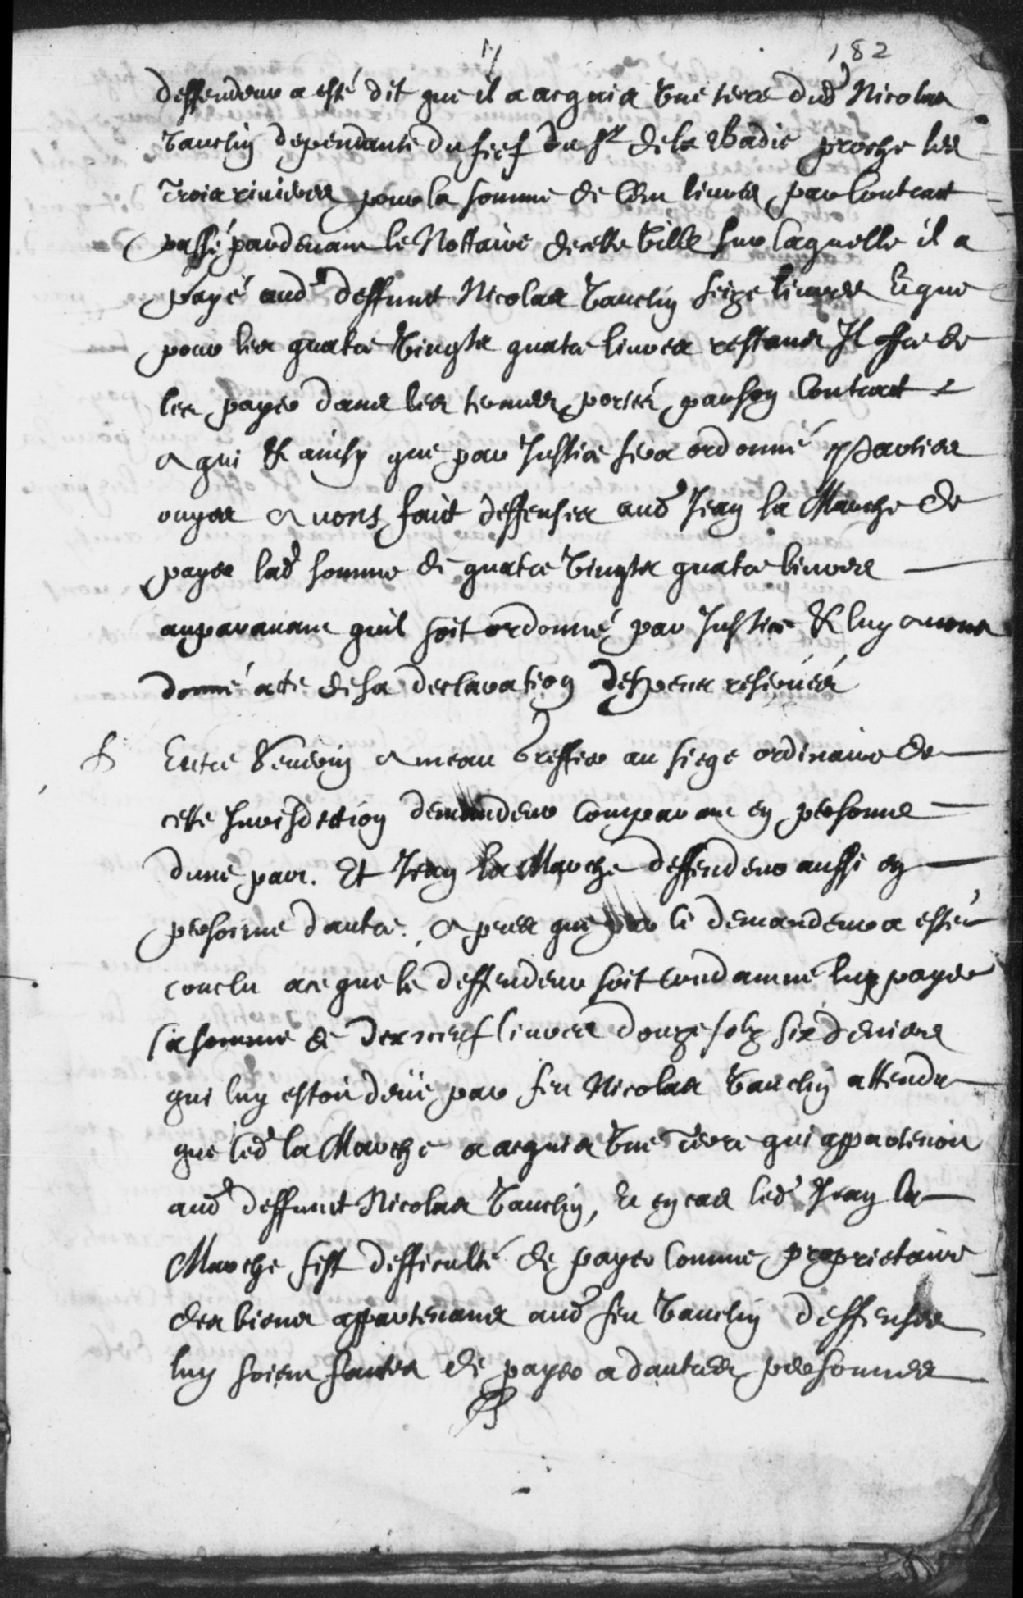 17 182
deffendeur a esté dit que il a acquis une terre dud Nicolas
Gauchin dependante du fief du Sr de la Badie proche les
Trois rivieres pour la somme de Cen livres par Contract
passé pardevant le Nottaire de cette ville sur laquelle il a
payé aud deffunt Nicolas Gauchin seize livres Et que
pour les quatre vingts quatre livres restans Il offre de
les payer dans les termes portés par son Contract
a qui Et ainsy que par Justice sera ordonné Parties
ouyes avons fait deffenses aud Jean la Marche de
payer lad somme de quatre vingts quatre livres
auparavant quil soit ordonné par Justice Et luy avons
donné acte de sa declaration despens reservés
Entre Severin ameau Greffier au siege ordinaire de
cette Jurisdiction demandeur Comparant en personne
dune part. Et Jean la Marche deffendeur aussi en
personne dautre. Apres que par le demandeur a esté
conclu a ce que le deffendeur soit condamné luy payer
la somme de dix neuf livres douze solz six deniers
qui luy estoit deüe par feu Nicolas Gauchin attendu
que led la Marche a acquis une Terre qui appartenoit
aud deffunt Nicolas Gauchin, Et en cas led Jean la
Marche fist difficulté de payer Comme proprietaire
des biens appartenans aud feu Gauchin deffenses
luy soient faites de payer a dautres personnes